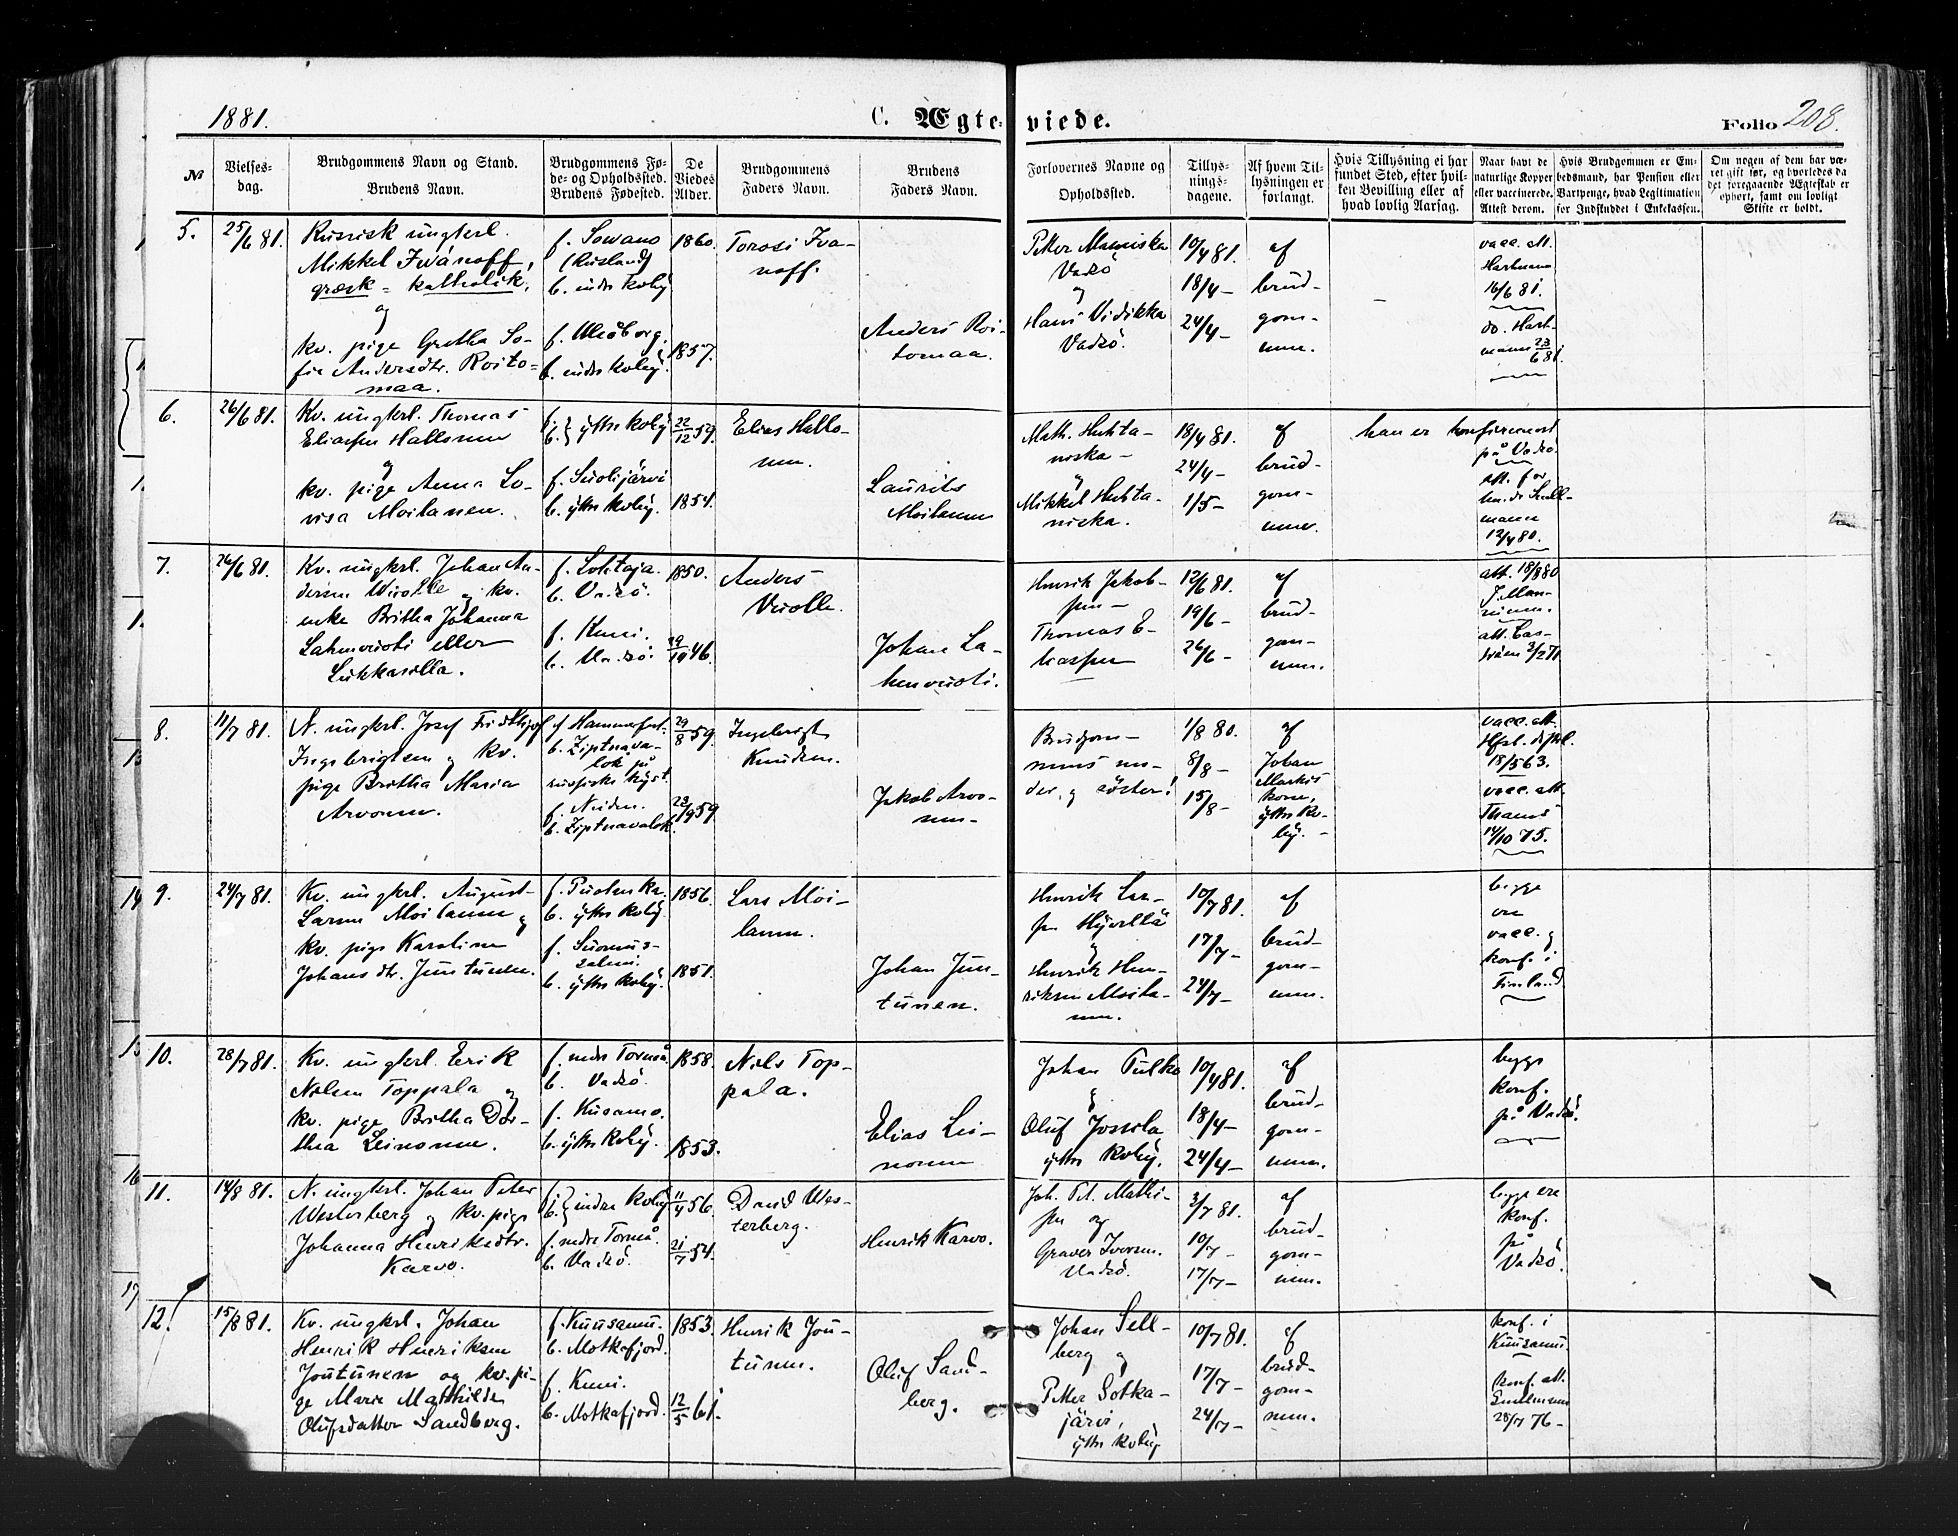 1881.
C. Ægte-viede.
Folio 208.
№
Vielses-
dag.
Brudgommens Navn og Stand.
Brudens Navn.
Brudgommens Fø-
de- og Opholdssted.
Brudens Fødested.
De
Viedes
Alder.
Brudgommens
Faders Navn.
Brudens
Faders Navn.
Forlovernes Navne og
Opholdssted.
Tillys-
nings-
dagene.
Af hvem Til-
lysningen er
forlangt.
Hvis Tillysning ei har
fundet Sted, efter hvil-
ken Bevilling eller af
hvad lovlig Aarsag.
Naar havt de
naturlige Kopper
eller vaccinerede.
Attest derom.
Hvis Brudgommen er Em-
bedsmand, har Pension eller
Vartpenge, hvad Legitimation
for Indskuddet i Enkekassen.
Om nogen af dem har væ-
ret gift før, og hvorledes da
det foregaaende Ægteskab er
ophørt, samt om lovligt
Skifte er holdt.
5.
25/6 81.
Russisk ungkrl.
Mikkel Iwánoff,
græsk-katholik,
og
kv. pige Gretha So-
fie Andersdtr. Roito-
maa.
f. Sowano
(Rusland)
b. indre Koby
f. Uleåborg.
b. indre Koby.
1860.
1857.
Torosi Iva-
noff.
Anders Roi-
tomaa.
Petter Manniska
Vadsö
og
Hans Vidikka
Vadsö.
10/4 81.
18/4 -
24/4 -
af
brud-
gom-
men.
-
vacc. att.
Hartmann
16/6 81.
do. Hart-
mann 23/6 81.
6.
26/6 81.
Kv. ungkrl. Thomas
Eliassen Hallonen
og
kv. pige Anna Lo-
visa Moilanen.
f. } ytre Koby
b. }
f. Suolijärvi
b. ytre Koby.
22/12 59.
1854.
Elias Hallo-
nen.
Laurits
Moilanen
Math. Huhta-
niska -
og
Mikkel Huhta-
niska.
18/4 81.
24/4 -
1/5 -
af
brud-
gom-
men.
han er konfirmeret
på Vadsö.
att. for
12/4 80.
7.
26/6 81.
Kv. ungkrl. Johan An-
dersen Wirolle og kv.
enke Britha Johanna
Lahenvuoti eller
Liikkasilla.
f. Lohtaja.
b. Vadsö.
f. Kemi.
b. Vadsö.
1850.
29/10 46.
Anders
Virolle.
Johan La-
henvuoti.
Henrik Jakob-
sen -
Thomas E-
liassen
12/6 81.
19/6 -
26/6 -
af
brud-
gom-
men.
att. 18/8 80
att. Cas-
trén 3/2 71
8.
11/7 81.
N. ungkrl. Josef Fridthjof
Ingebrigtsen og kv.
pige Britha Maria
Arvonen.
f. Hammerfest.
b. Ziptnava-
lok på
russiske kyst.
f. Neiden.
b. Ziptnavalok.
29/8 59.
23/9 59.
Ingebrigt
Knudsen.
Jakob Arvo-
nen -
Brudgom-
mens mo-
der, og söster!
1/8 80.
8/8 -
15/8 -
af
Johan
Markus
kone,
ytre Ko-
by. -
vacc. att.
18/5 63.
vacc. att.
14/10 75.
9.
24/7 81.
Kv. ungkrl. August
Larsen Moilanen og
kv. pige Karoline
Johans dtr. Juntunen.
f. Puolanka.
b. ytre Koby.
f. Suomus-
salmi.
b. ytre Koby.
1856.
1851.
Lars Moi-
lanen.
Johan Jun-
tunen.
Henrik Lar-
sen Hyvettä
og
Henrik Hen-
riksen Moila-
nen.
10/7 81.
17/7 -
24/7 -
af
brud-
gom-
men.
begge
ere
vacc. og
konf. i
Finland
10.
28/7 81.
Kv. ungkrl. Erik
Nilsen Toppala og
kv. pige Britha Dor-
thea Leinonen.
f. nedre Torneå.
b. Vadsö.
f. Kusamo.
b. ytre Koby.
1858.
1853.
Nils Top-
pala.
Elias Lei-
nonen
Johan Pulka
&
Oluf Jossila
ytre Koby.
10/4 81.
18/4 -
24/4 -
af
brud-
gom-
men.
begge
konf.
på Vadsö.
11.
14/8 81.
N. ungkrl. Johan Peter
Westerberg og kv. pige
Johanna Henriksdtr.
Karvo.
f. } indre Koby
b. }
f. nedre Torneå.
b. Vadsö.
11/4 56.
21/7 54.
David Wes-
terberg.
Henrik Karvo.
Joh. Pet. Mathi-
sen og
Graver Iversen.
Vadsö.
3/7 81.
10/7 -
17/7 -
af
brud-
gom-
men.
begge ere
konf.
på
Vadsö.
12.
15/8 81.
Kv. ungkrl. Johan
Henrik Henriksen
Joutunen og kv. pi-
ge Marie Matthilde
Olufsdatter Sandberg.
f. Kuusamo.
b. Motkafjord.
f. Kemi.
b. Motkafjord.
1853.
12/5 61.
Henrik Jou-
tunen.
Oluf Sand-
berg.
Johan Sell-
berg og
Petter Sotka-
järvi,
ytre Koby
10/7 81.
17/7 -
24/7 -
af
brud-
gom-
men.
konf. i
Kuusamo.
konf. att.
28/7 76 -